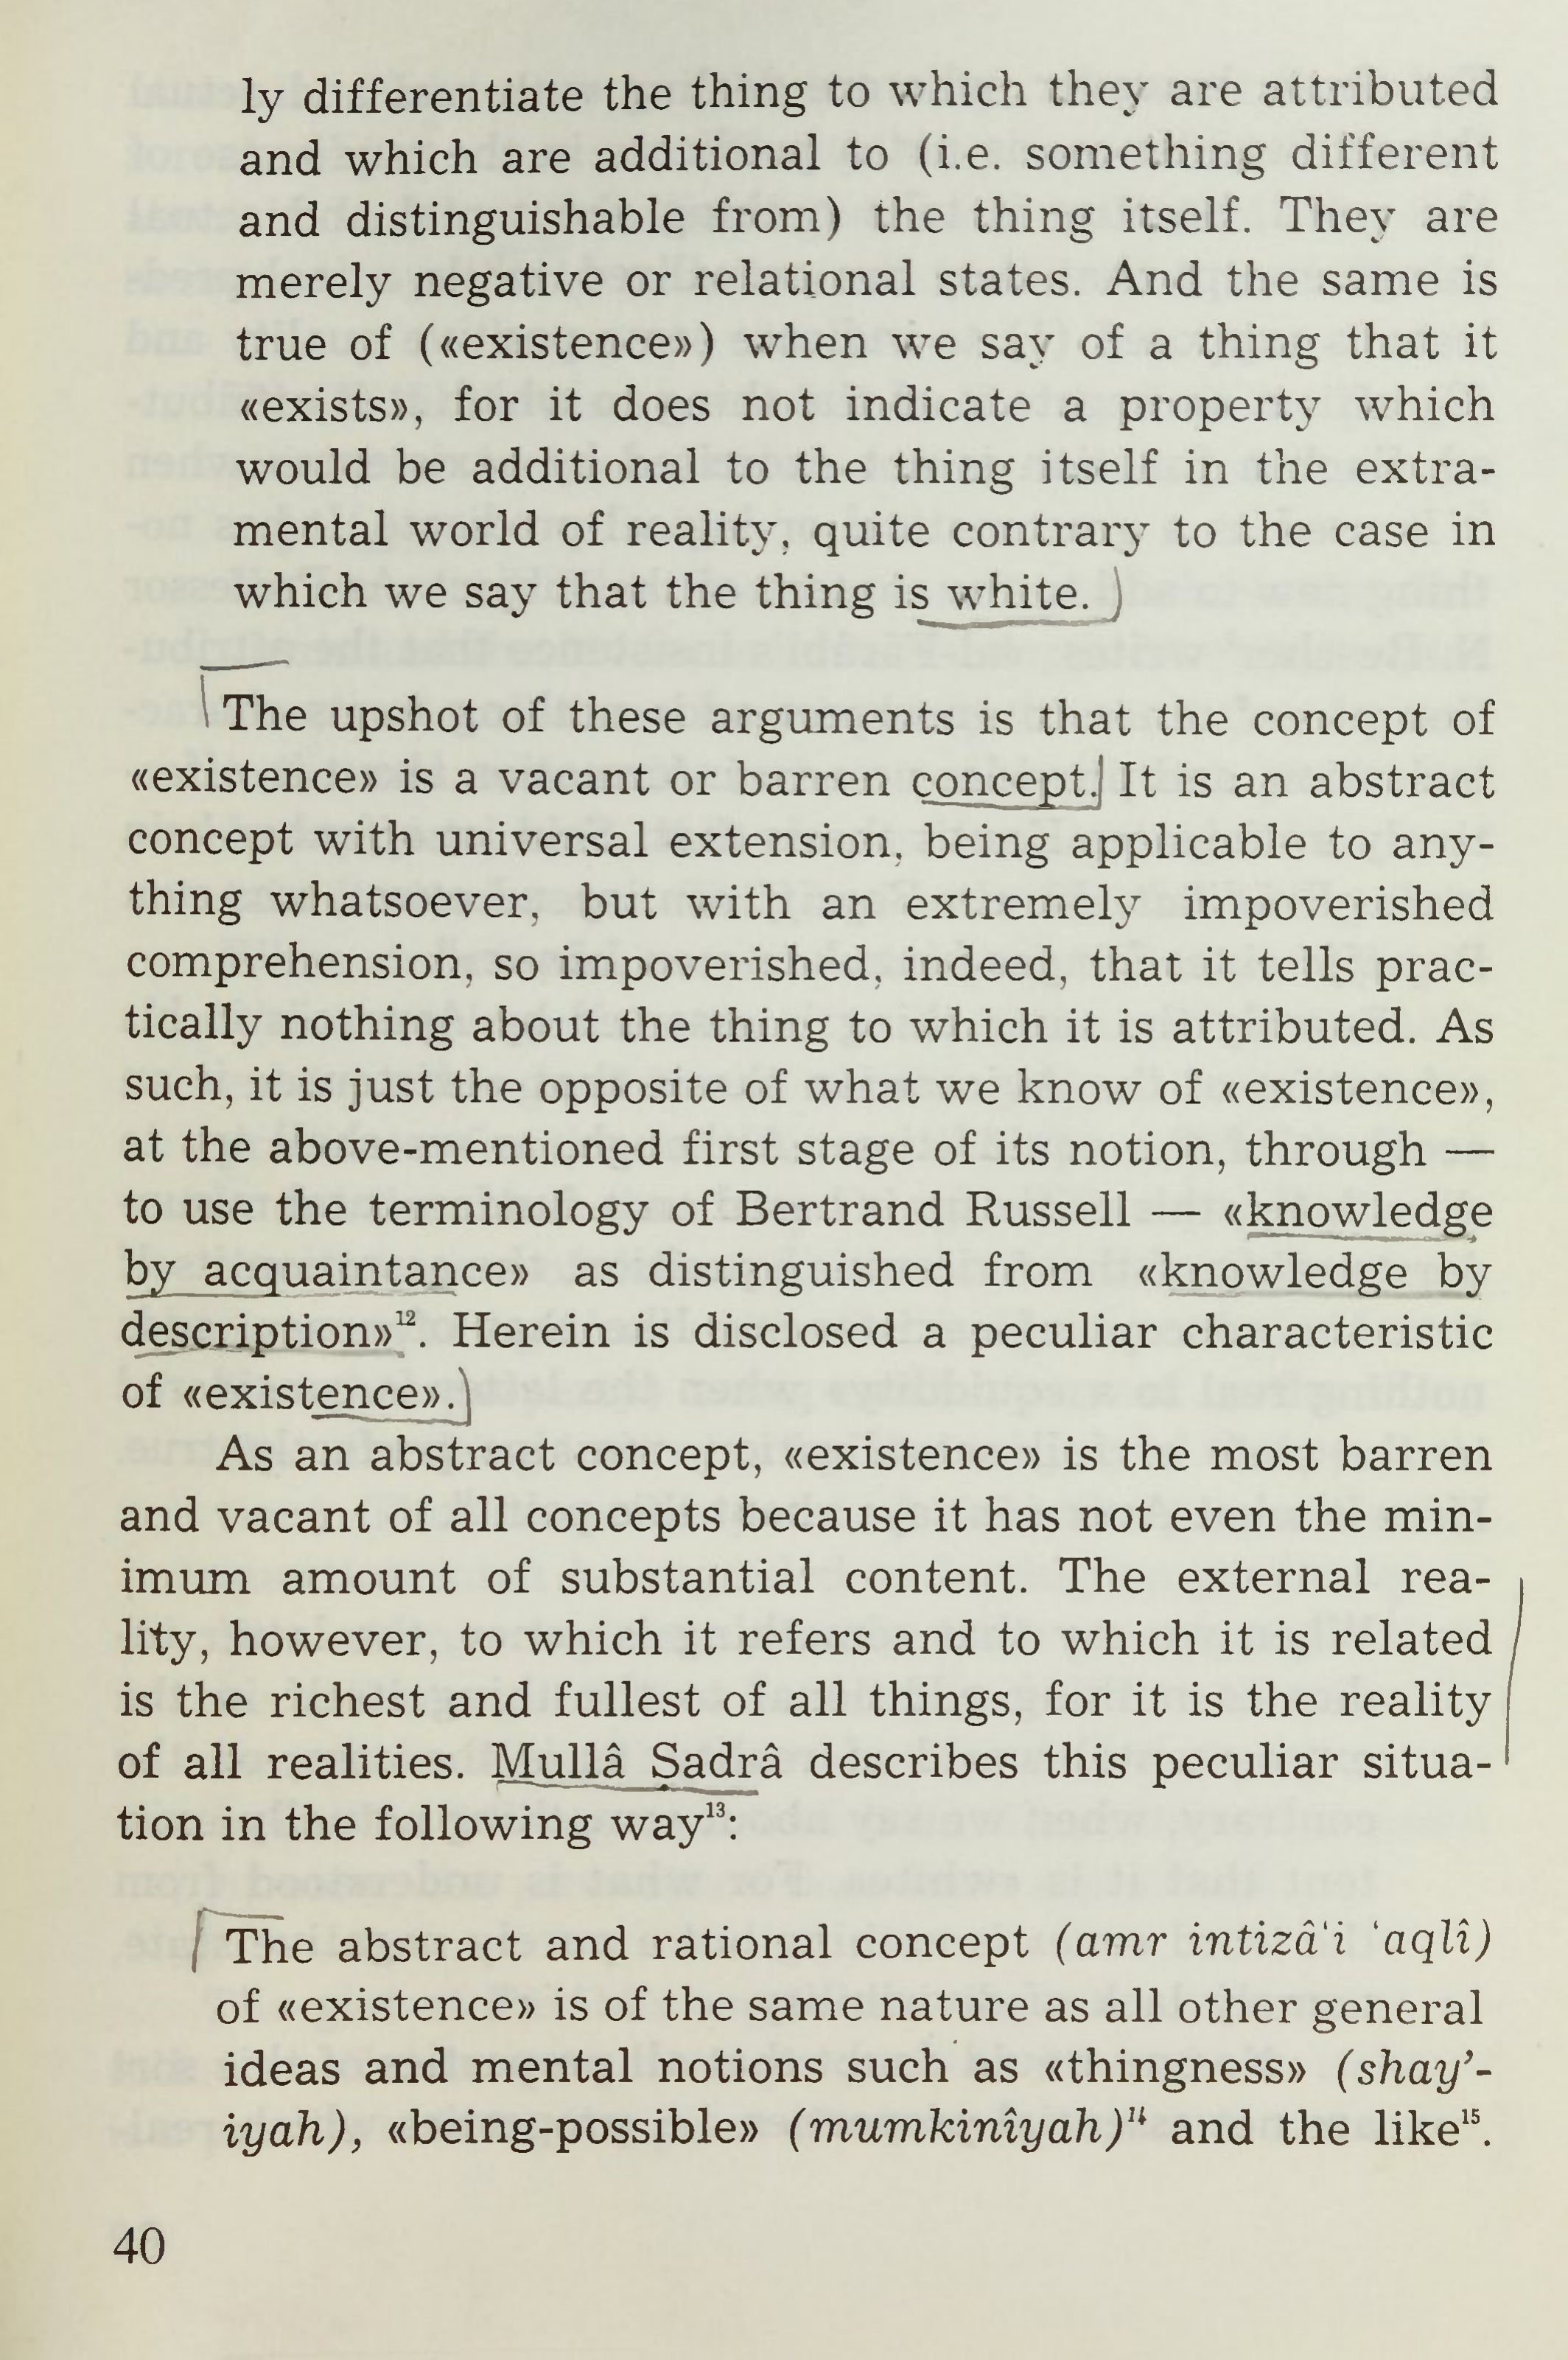 ly differentiate the thing to which they are attributed
and which are additional to (i.e. something different
and distinguishable from) the thing itself. They are
merely negative or relational states. And the same is
true of («existence») when we say of a thing that it
«exists», for it does not indicate a property which
would be additional to the thing itself in the extra-
mental world of reality, quite contrary to the case in
which we say that the thing is white.
The upshot of these arguments is that the concept of
«existence» is a vacant or barren concept. It is an abstract
concept with universal extension, being applicable to any-
thing whatsoever, but with an extremely impoverished
comprehension, so impoverished, indeed, that it tells prac-
tically nothing about the thing to which it is attributed. As
such, it is just the opposite of what we know of «existence»,
at the above-mentioned first stage of its notion, through —
to use the terminology of Bertrand Russell — «knowledge
by acquaintance» as distinguished from «knowledge by
description»¹². Herein is disclosed a peculiar characteristic
of «existence».
As an abstract concept, «existence» is the most barren
and vacant of all concepts because it has not even the min-
imum amount of substantial content. The external rea-
lity, however, to which it refers and to which it is related
is the richest and fullest of all things, for it is the reality
of all realities. Mullâ Ṣadrâ describes this peculiar situa-
tion in the following way¹³:
The abstract and rational concept (amr intizâ‘i ‘aqlî)
of «existence» is of the same nature as all other general
ideas and mental notions such as «thingness» (shay’-
iyah), «being-possible» (mumkinîyah)¹⁴ and the like¹⁵.
40